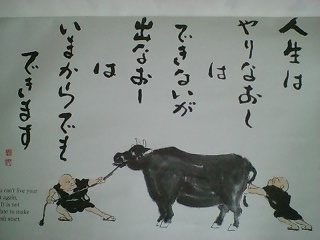 人生は
やりなおし
は
できないが
出なおし
は
いまからでも
できます
can't live your
again.
It is not
late to make
sh start.